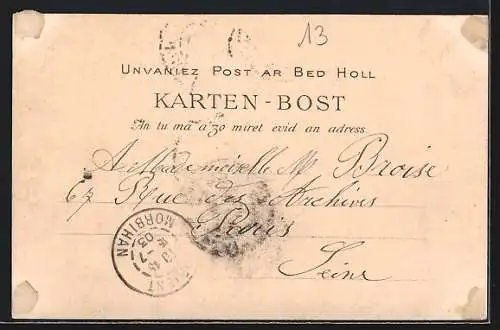 13
Unvaniez Post ar Bed Holl
KARTEN-BOST
An tu ma a zo miret evid an adress
A Mademoiselle M Broise
67 Rue des Archives
Paris
Seine
MORBIHAN
03